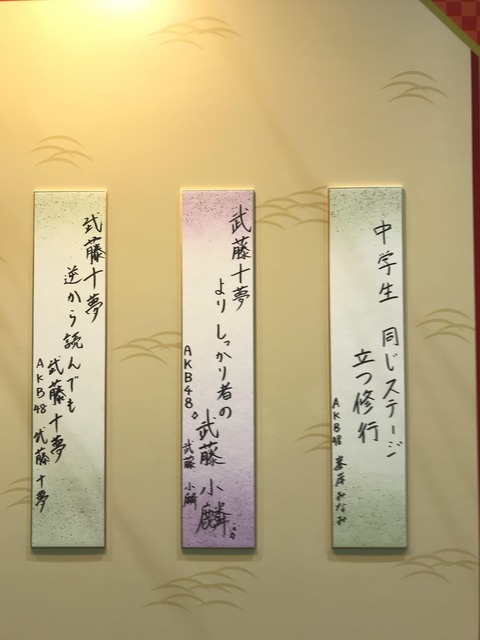 中学生 同じステージ
立つ修行
AKB48 峯岸みなみ
武藤十夢
よりしっかり者の
武藤小麟
AKB48
武藤 小麟
武藤十夢
逆から読んでも
武藤十夢
AKB48 武藤十夢